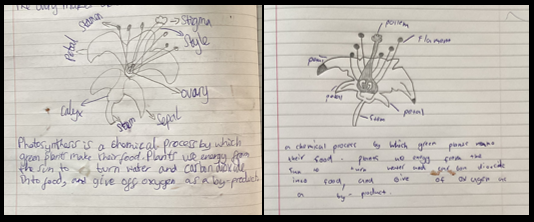 The ovary makes
Stamen
Stigma
Style
Petal
ovary
Calyx
Sepal
Photosynthesis is a chemical process by which
green plants make their food. Plants use energy from
the sun to turn water and carbon dioxide
into food, and give off oxygen as a by-product
pollen
petal
a chemical process by which green
their food. the
sun to turn water and dioxide
into food, and give of oxygen as
a by-product.